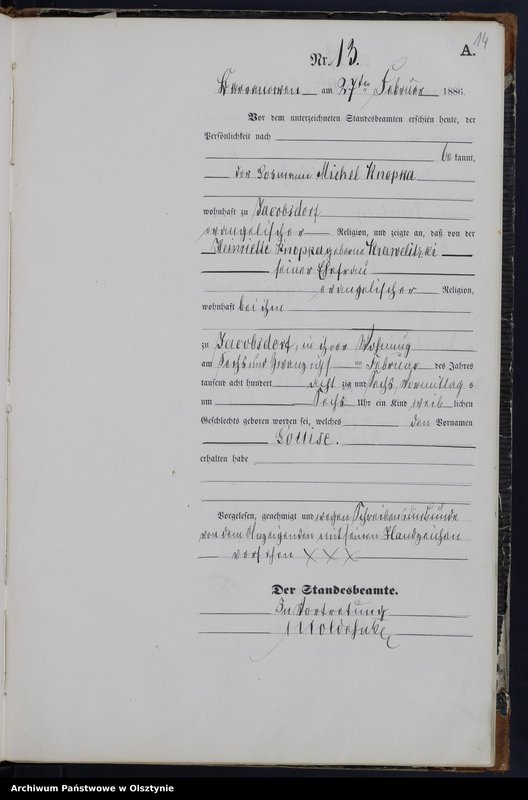 14
A.
Nr. 13.
am 27ten Februar 1886.
Vor dem unterzeichneten Standesbeamten erschien heute, der
Persönlichkeit nach
be kannt,
der Losmann Michel Knopka
wohnhaft zu Jacobsdorf
evangelischer Religion, und zeigte an, daß von der
Heinriette Knopka geborne Krawelitzki
seiner Ehefrau
evangelischer Religion,
wohnhaft bei ihm
zu Jacobsdorf, in ihrer Wohnung
am Sechs und zwanzigsten Februar des Jahres
tausend acht hundert acht zig und Sechs Vormittag s
um Sechs Uhr ein Kind weib lichen
Geschlechts geboren worden sei, welches den Vornamen
Louise.
erhalten habe
Vorgelesen, genehmigt und wegen Schreibensunkunde
von dem Anzeigenden mit seinen Handzeichen
versehen XXX
Der Standesbeamte.
In Vertretung
Archiwum Państwowe w Olsztynie